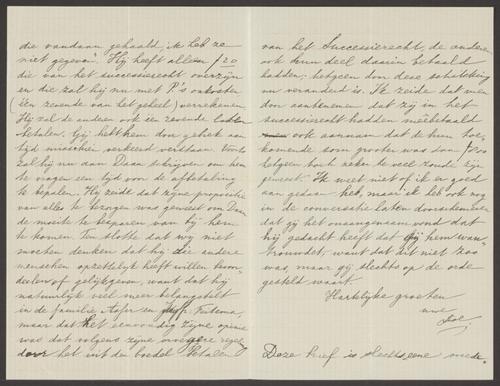 die vandaan gehaald, ik heb ze
niet gegeven. Hij heeft alleen f 20
die van het successierecht overzijn
en die zal hij nu met P's onkosten
(één zevende van het geheel) verrekenen.
Hij zal de anderen ook één zevende laten
betalen. Gij hebt hem don gehak aan
tijd misschien verkeerd verstaan. Voorts
zal hij nu aan Daan schrijven om hem
te vragen een tijd voor de afbetaling
te bepalen. Hij zeide dat zijne propositie
van alles te borgen was geweest om Daan
de moeite te besparen van bij hem
te komen. Ten slotte dat wij niet
moeten denken dat hij die andere
menschen opzettelijk heeft willen bevoor-
deelen of gelijkgeven, want dat hij
natuurlijk veel meer belangstelt
in de familie dan in
maar dat het eenvoudig zijne opinie
was dat volgens zijne vroegere regel
door het uit den boedel betalen
van het Successierecht, de anderen
ook hun deel daarin betaald
hadden; hetgeen door deze schatting
nu veranderd is. Ik zeide dat men
dan aantenemen dat zij in het
successierecht hadden meebetaald
ook aannam dat de hun toe-
komende som grooter was dan f
hetgeen toch zeker te veel zoude zijn
geweest. Ik weet niet of ik er goed
aan gedaan heb, maar ik heb ook nog
in de conversatie laten doorschemeren
dat gij het onaangenaam vond dat
hij gedacht heeft dat gij hem wan-
trouwdet, want dat dit niet zoo
was, maar gij slechts op de orde
gesteld waart.
Hartelijke groeten
uwe
Deze brief is slechts eene mede-